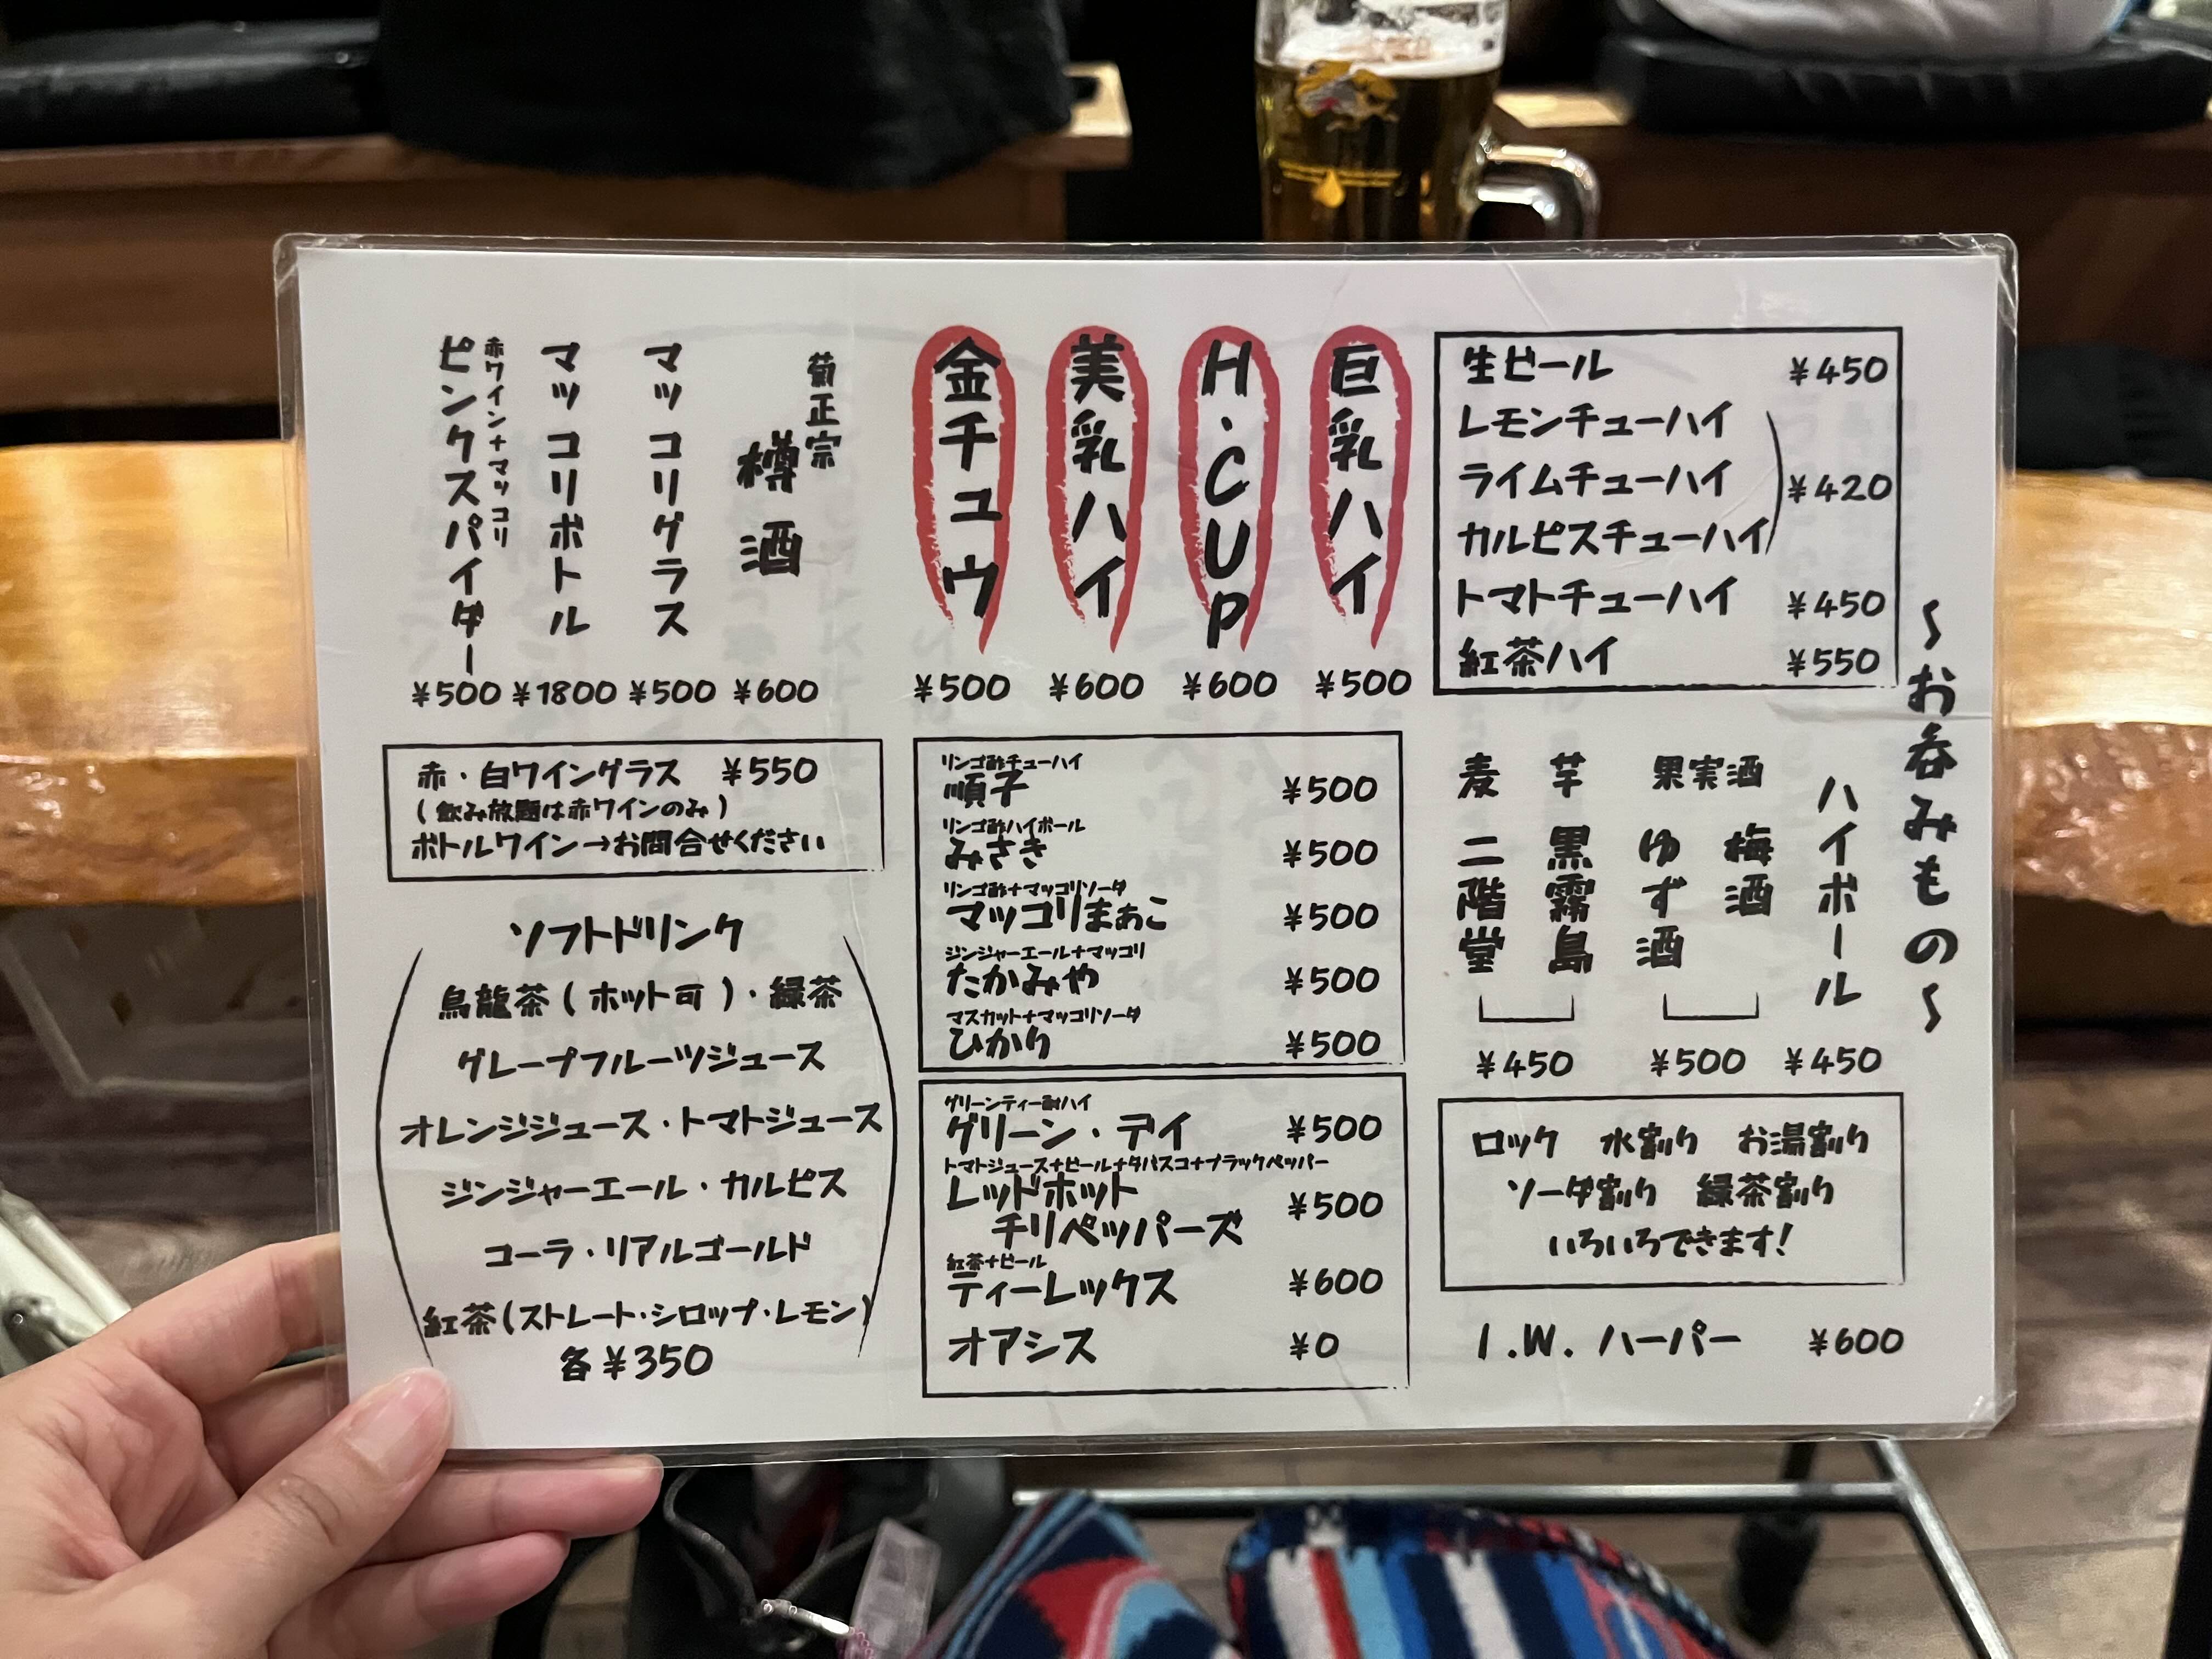 ～お呑みもの～
生ビール ¥450
レモンチューハイ
ライムチューハイ ¥420
カルピスチューハイ
トマトチューハイ ¥450
紅茶ハイ ¥550
巨乳ハイ ¥500
H・CUP ¥600
美乳ハイ ¥600
金チュウ ¥500
菊正宗
樽酒 ¥600
マッコリグラス ¥500
マッコリボトル ¥1800
赤ワイン+マッコリ
ピンクスパイダー ¥500
ハイボール ¥450
果実酒
梅酒
ゆず酒
¥500
芋 黒霧島
麦 二階堂
¥450
ロック 水割り お湯割り
ソーダ割り 緑茶割り
いろいろできます!
I.W. ハーパー ¥600
リンゴ酢チューハイ
順子 ¥500
リンゴ酢ハイボール
みさき ¥500
リンゴ酢+マッコリソーダ
マッコリまぁこ ¥500
ジンジャーエール+マッコリ
たかみや ¥500
マスカット+マッコリソーダ
ひかり ¥500
グリーンティー酎ハイ
グリーン・デイ ¥500
トマトジュース+ビール+タバスコ+ブラックペッパー
レッドホット
チリペッパーズ ¥500
紅茶+ビール
ティーレックス ¥600
オアシス ¥0
赤・白ワイングラス ¥550
(飲み放題は赤ワインのみ)
ボトルワイン→お問合せください
ソフトドリンク
烏龍茶(ホット可)・緑茶
グレープフルーツジュース
オレンジジュース・トマトジュース
ジンジャーエール・カルピス
コーラ・リアルゴールド
紅茶(ストレート・シロップ・レモン)
各¥350